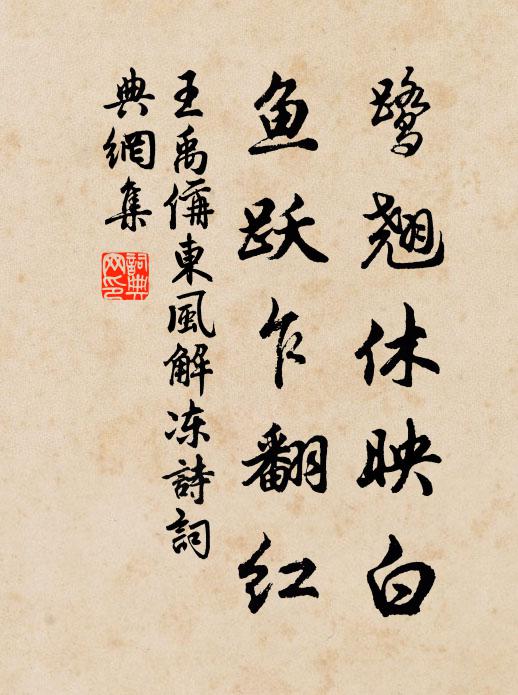 鹭翘休映白
鱼跃乍翻红
王禹偁東風解冻詩詞
典網集
詞典网印